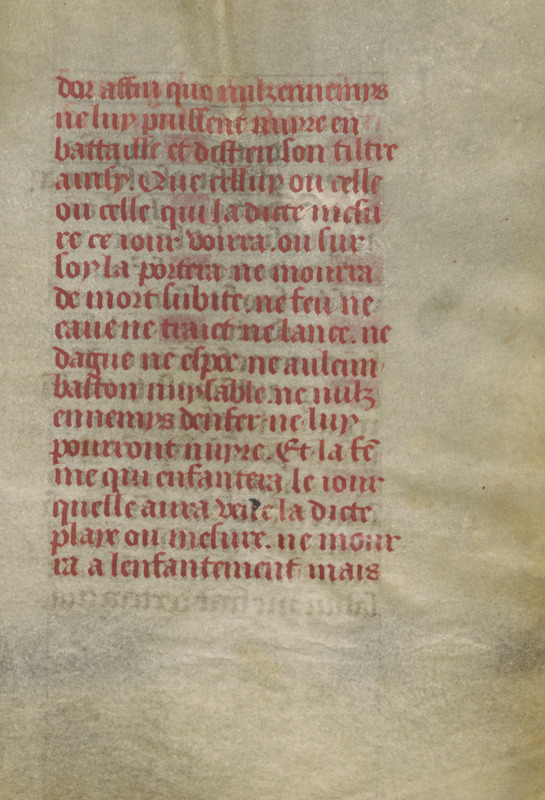 dor affin que nulz ennemys
ne luy puissent nuyre en
battaille et
ainsy. Que celluy ou celle
ou celle qui la dicte mesu
re ce iour voirra. ou sur
soy la portera ne mourra
de mort subite. ne feu ne
eaue ne traict ne lance. ne
dague ne espee. ne aulcun
baston nuysable. ne nulz
ennemys denfer ne luy
pourront nuyre. Et la fē
me qui enfantera le iour
quelle aura veue la dicte
playe ou mesure. ne mour
ra a lenfantement mais